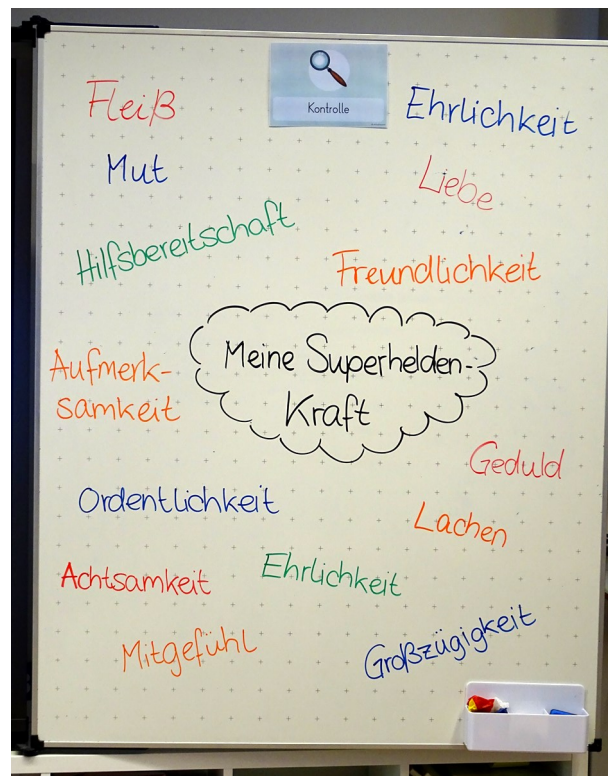 Kontrolle
Fleiß
Ehrlichkeit
Mut
Liebe
Hilfsbereitschaft
Freundlichkeit
Meine Superhelden-
Kraft
Aufmerk-
samkeit
Geduld
Ordentlichkeit
Lachen
Achtsamkeit
Ehrlichkeit
Mitgefühl
Großzügigkeit